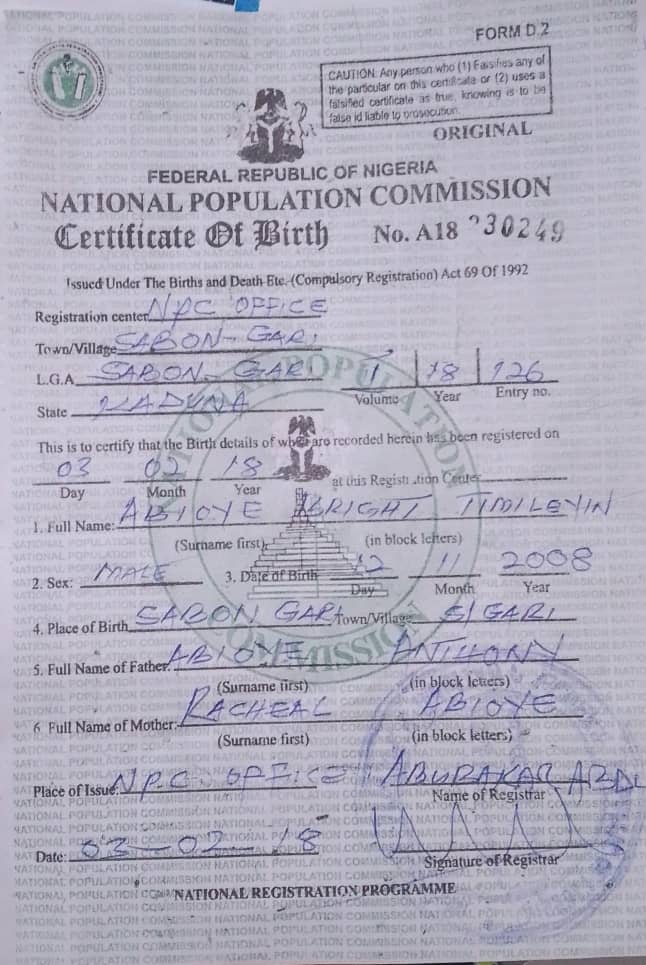 FORM D.2
CAUTION: Any person who (1) Falsifies any of
the particular on this certificate or (2) uses a
falsified certificate as true, knowing is to be
false id liable to prosecution.
ORIGINAL
FEDERAL REPUBLIC OF NIGERIA
NATIONAL POPULATION COMMISSION
Certificate Of Birth No. A18 230249
Issued Under The Births and Death Etc. (Compulsory Registration) Act 69 Of 1992
Registration center NPC OFFICE
Town/Village SABON-GARI
L.G.A. SABON GARI 1 18 126
Volume Year Entry no.
State KADUNA
This is to certify that the Birth details of who are recorded herein has been registered on
03 02 18 at this Registration Center
Day Month Year
1. Full Name: ABIOYE BRIGHT TIMILEYIN
(Surname first) (in block letters)
2. Sex: MALE 3. Date of Birth 12 11 2008
Day Month Year
4. Place of Birth SABON GARI Town/Village S/GARI
5. Full Name of Father: ABIOYE ANTHONY
(Surname first) (in block letters)
6 Full Name of Mother: RACHEAL ABIOYE
(Surname first) (in block letters)
Place of Issue: NPC OFFICE ABUBAKAR ABDU
Name of Registrar
Date: 03-02-18
Signature of Registrar
NATIONAL REGISTRATION PROGRAMME